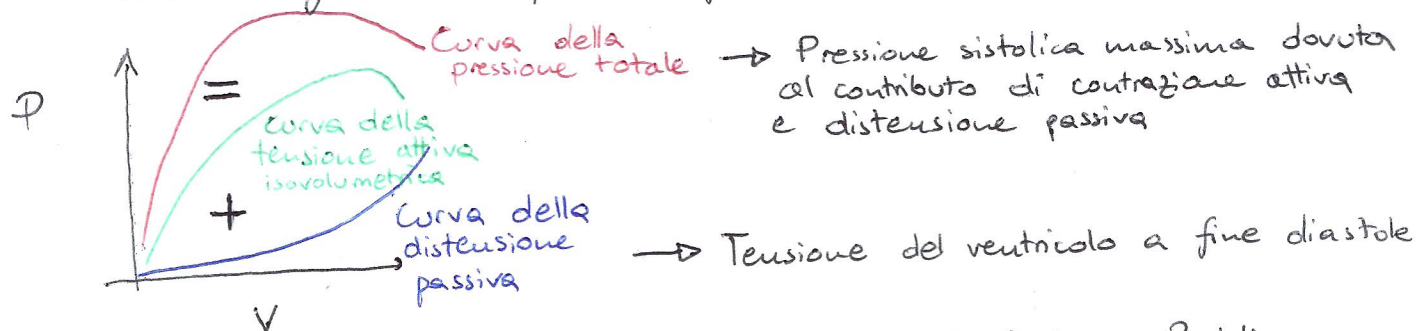 P
=
+
V
Curva della
pressione totale
→ Pressione sistolica massima dovuta
al contributo di contrazione attiva
e distensione passiva
Curva della
tensione attiva
isovolumetrica
Curva della
distensione
passiva
→ Tensione del ventricolo a fine diastole